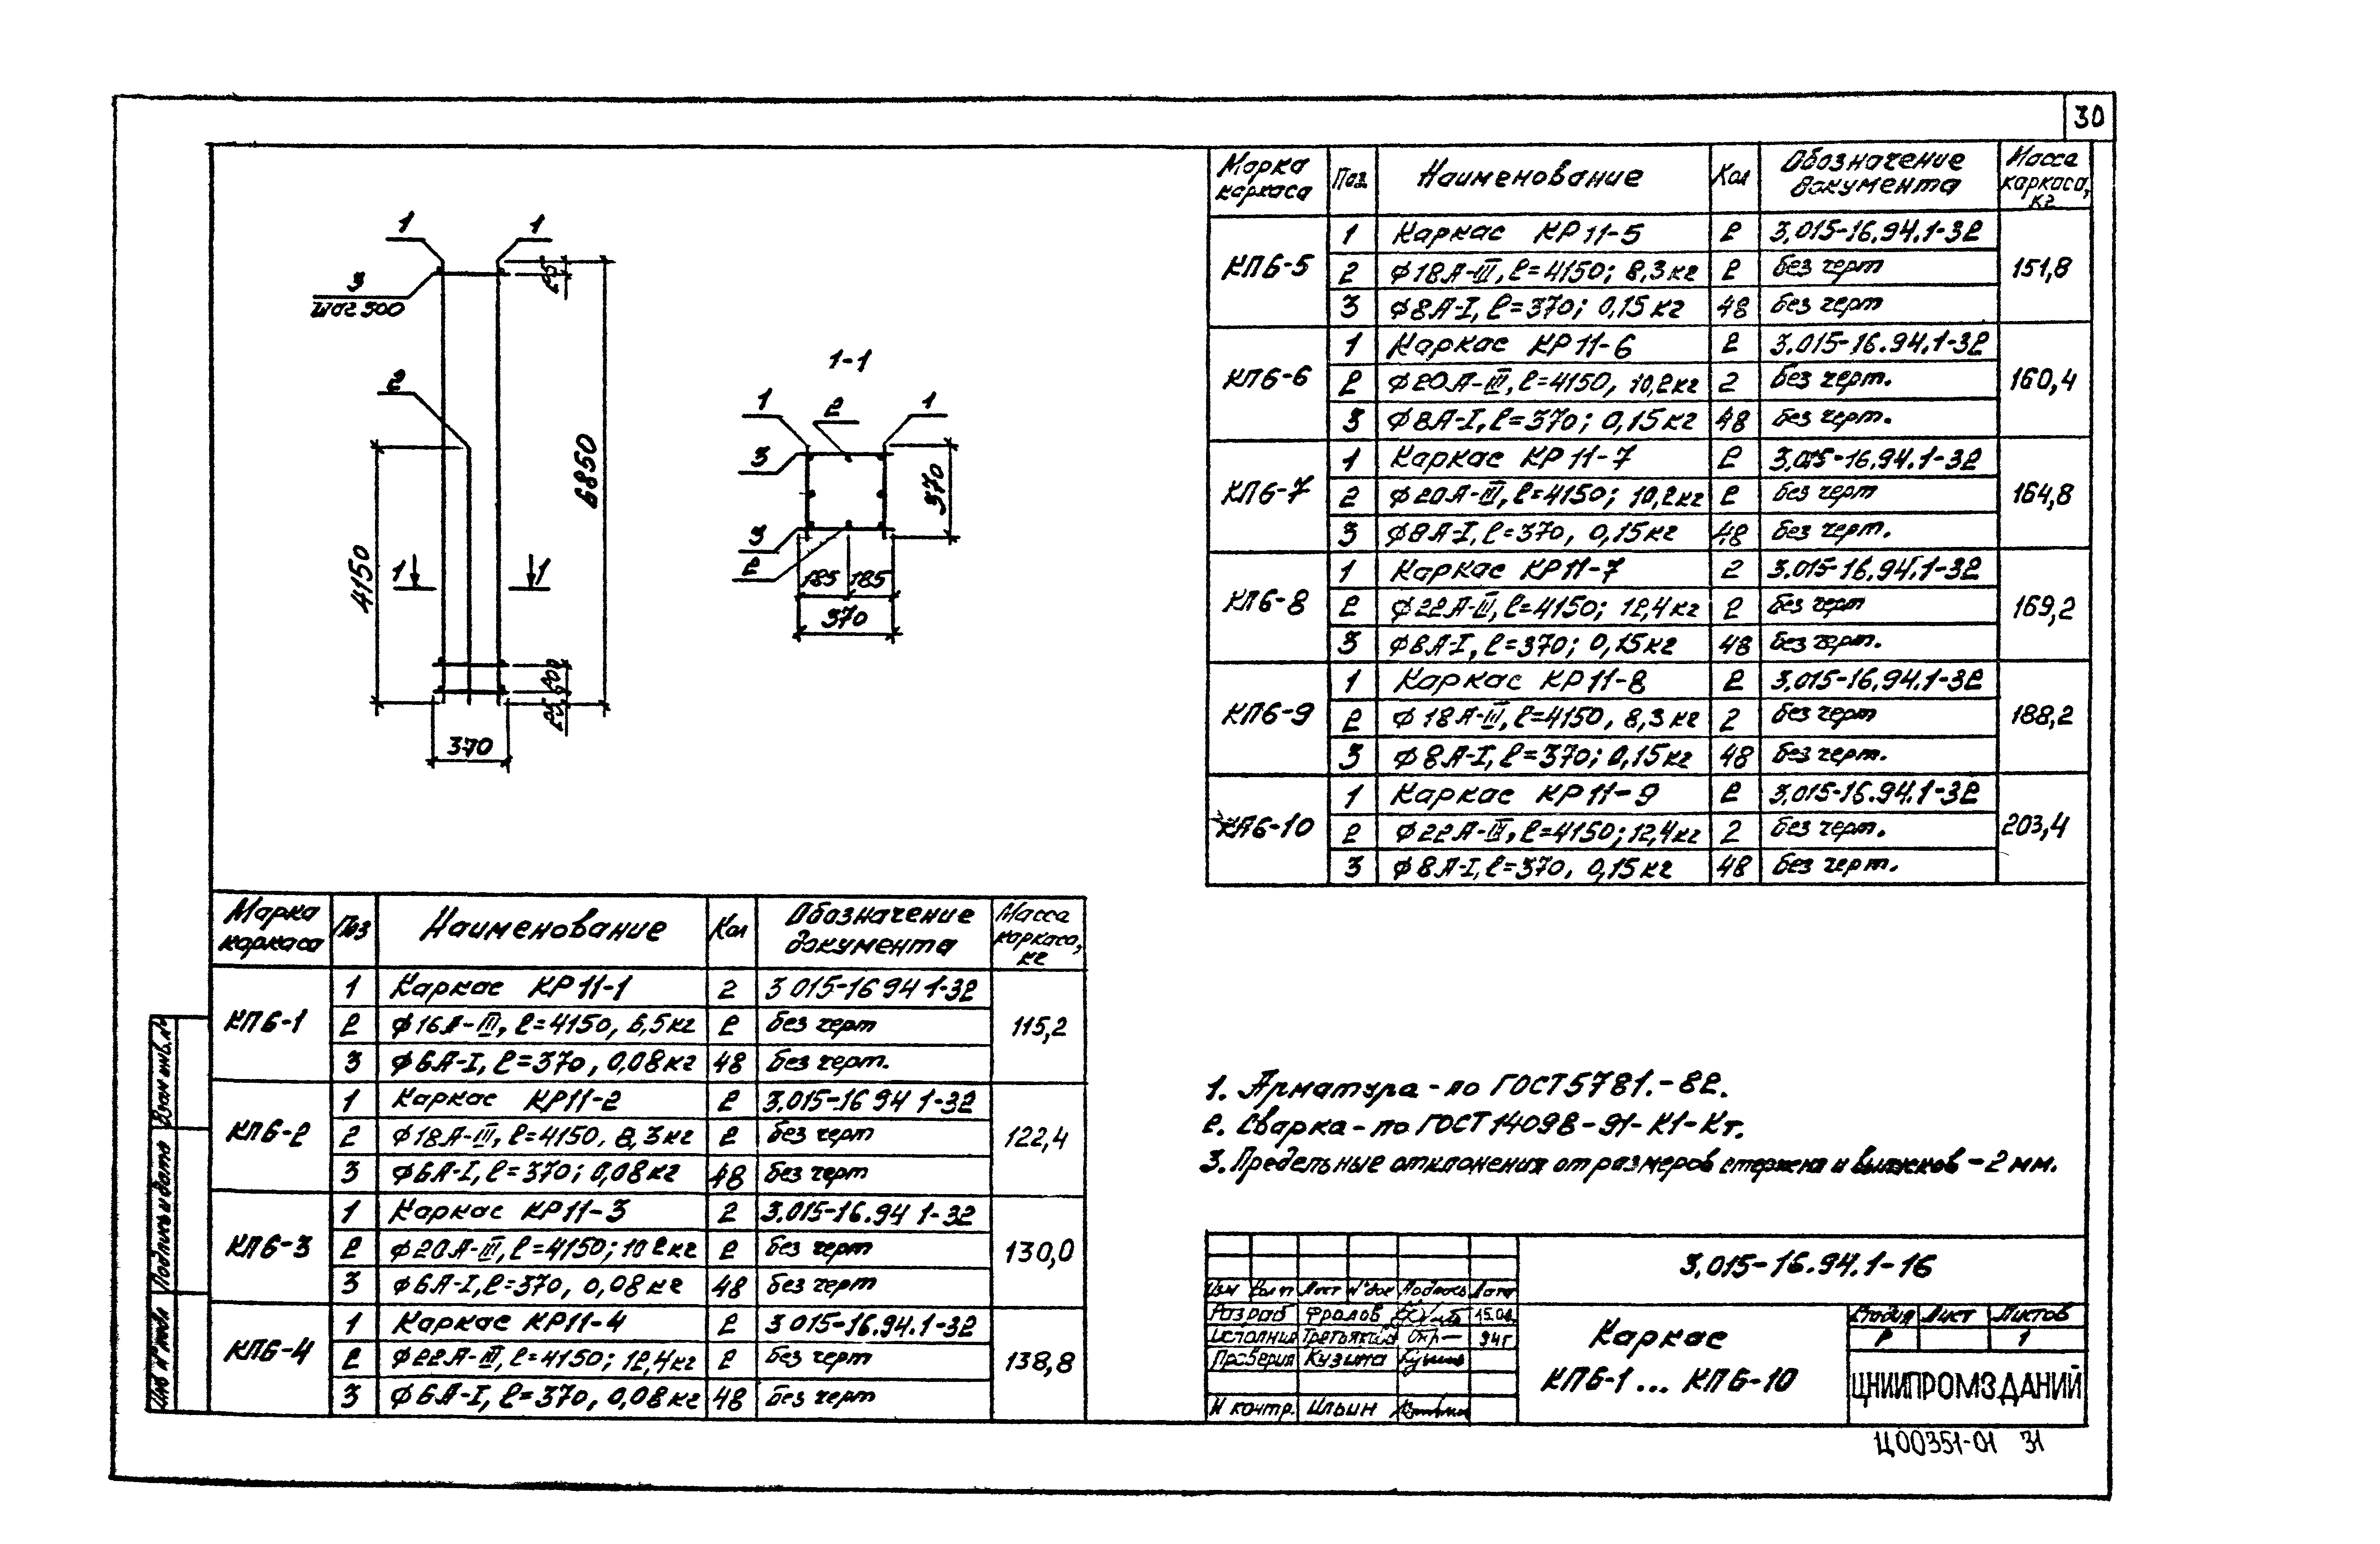 30
1 1
3
шаг 300
2
25
6850
4150
1 1
200
25
370
1-1
1 2 1
3
3
2
370
185 185
370
Марка каркаса Поз Наименование Кол Обозначение документа Масса каркаса, кг
КП6-5 151,8
1 Каркас КР11-5 2 3.015-16.94.1-32
2 ϕ18А-III, ℓ=4150; 8,3кг 2 без черт
3 ϕ8А-I, ℓ=370; 0,15кг 48 без черт
КП6-6 160,4
1 Каркас КР11-6 2 3.015-16.94.1-32
2 ϕ20А-III, ℓ=4150, 10,2кг 2 без черт.
3 ϕ8А-I, ℓ=370; 0,15кг 48 без черт.
КП6-7 164,8
1 Каркас КР11-7 2 3.015-16.94.1-32
2 ϕ20А-III, ℓ=4150; 10,2кг 2 без черт
3 ϕ8А-I, ℓ=370, 0,15кг 48 без черт.
КП6-8 169,2
1 Каркас КР11-7 2 3.015-16.94.1-32
2 ϕ22А-III, ℓ=4150; 12,4кг 2 без черт
3 ϕ8А-I, ℓ=370; 0,15кг 48 без черт.
КП6-9 188,2
1 Каркас КР11-8 2 3.015-16.94.1-32
2 ϕ18А-III, ℓ=4150, 8,3кг 2 без черт
3 ϕ8А-I, ℓ=370; 0,15кг 48 без черт.
КП6-10 203,4
1 Каркас КР11-9 2 3.015-16.94.1-32
2 ϕ22А-III, ℓ=4150; 12,4кг 2 без черт.
3 ϕ8А-I, ℓ=370, 0,15кг 48 без черт.
Марка каркаса Поз Наименование Кол Обозначение документа Масса каркаса, кг
КП6-1 115,2
1 Каркас КР11-1 2 3 015-16 94 1-32
2 ϕ16А-III, ℓ=4150, 6,5кг 2 без черт
3 ϕ6А-I, ℓ=370, 0,08кг 48 без черт.
КП6-2 122,4
1 Каркас КР11-2 2 3.015-16 94 1-32
2 ϕ18А-III, ℓ=4150, 8,3кг 2 без черт
3 ϕ6А-I, ℓ=370; 0,08кг 48 без черт
КП6-3 130,0
1 Каркас КР11-3 2 3.015-16.94 1-32
2 ϕ20А-III, ℓ=4150; 10 2кг 2 без черт
3 ϕ6А-I, ℓ=370, 0,08кг 48 без черт
КП6-4 138,8
1 Каркас КР11-4 2 3 015-16.94.1-32
2 ϕ22А-III, ℓ=4150; 12,4кг 2 без черт
3 ϕ6А-I, ℓ=370, 0,08кг 48 без черт
1. Арматура - по ГОСТ 5781.-82.
2. Сварка - по ГОСТ 14098-91-К1-Кт.
3. Предельные отклонения от размеров стержня и выпусков - 2 мм.
Взам инв.№
Подпись и дата
Инв № подл
3.015-16.94.1-16
Изм Кол уч Лист № док Подпись Дата
Разраб Фролов 15.04.
Исполнил Третьякова 94г
Проверил Кузина
Н контр. Ильин
Каркас
КП6-1 ... КП6-10
Стадия Лист Листов
Р 1
ЦНИИПРОМЗДАНИЙ
Ц00351-01 31